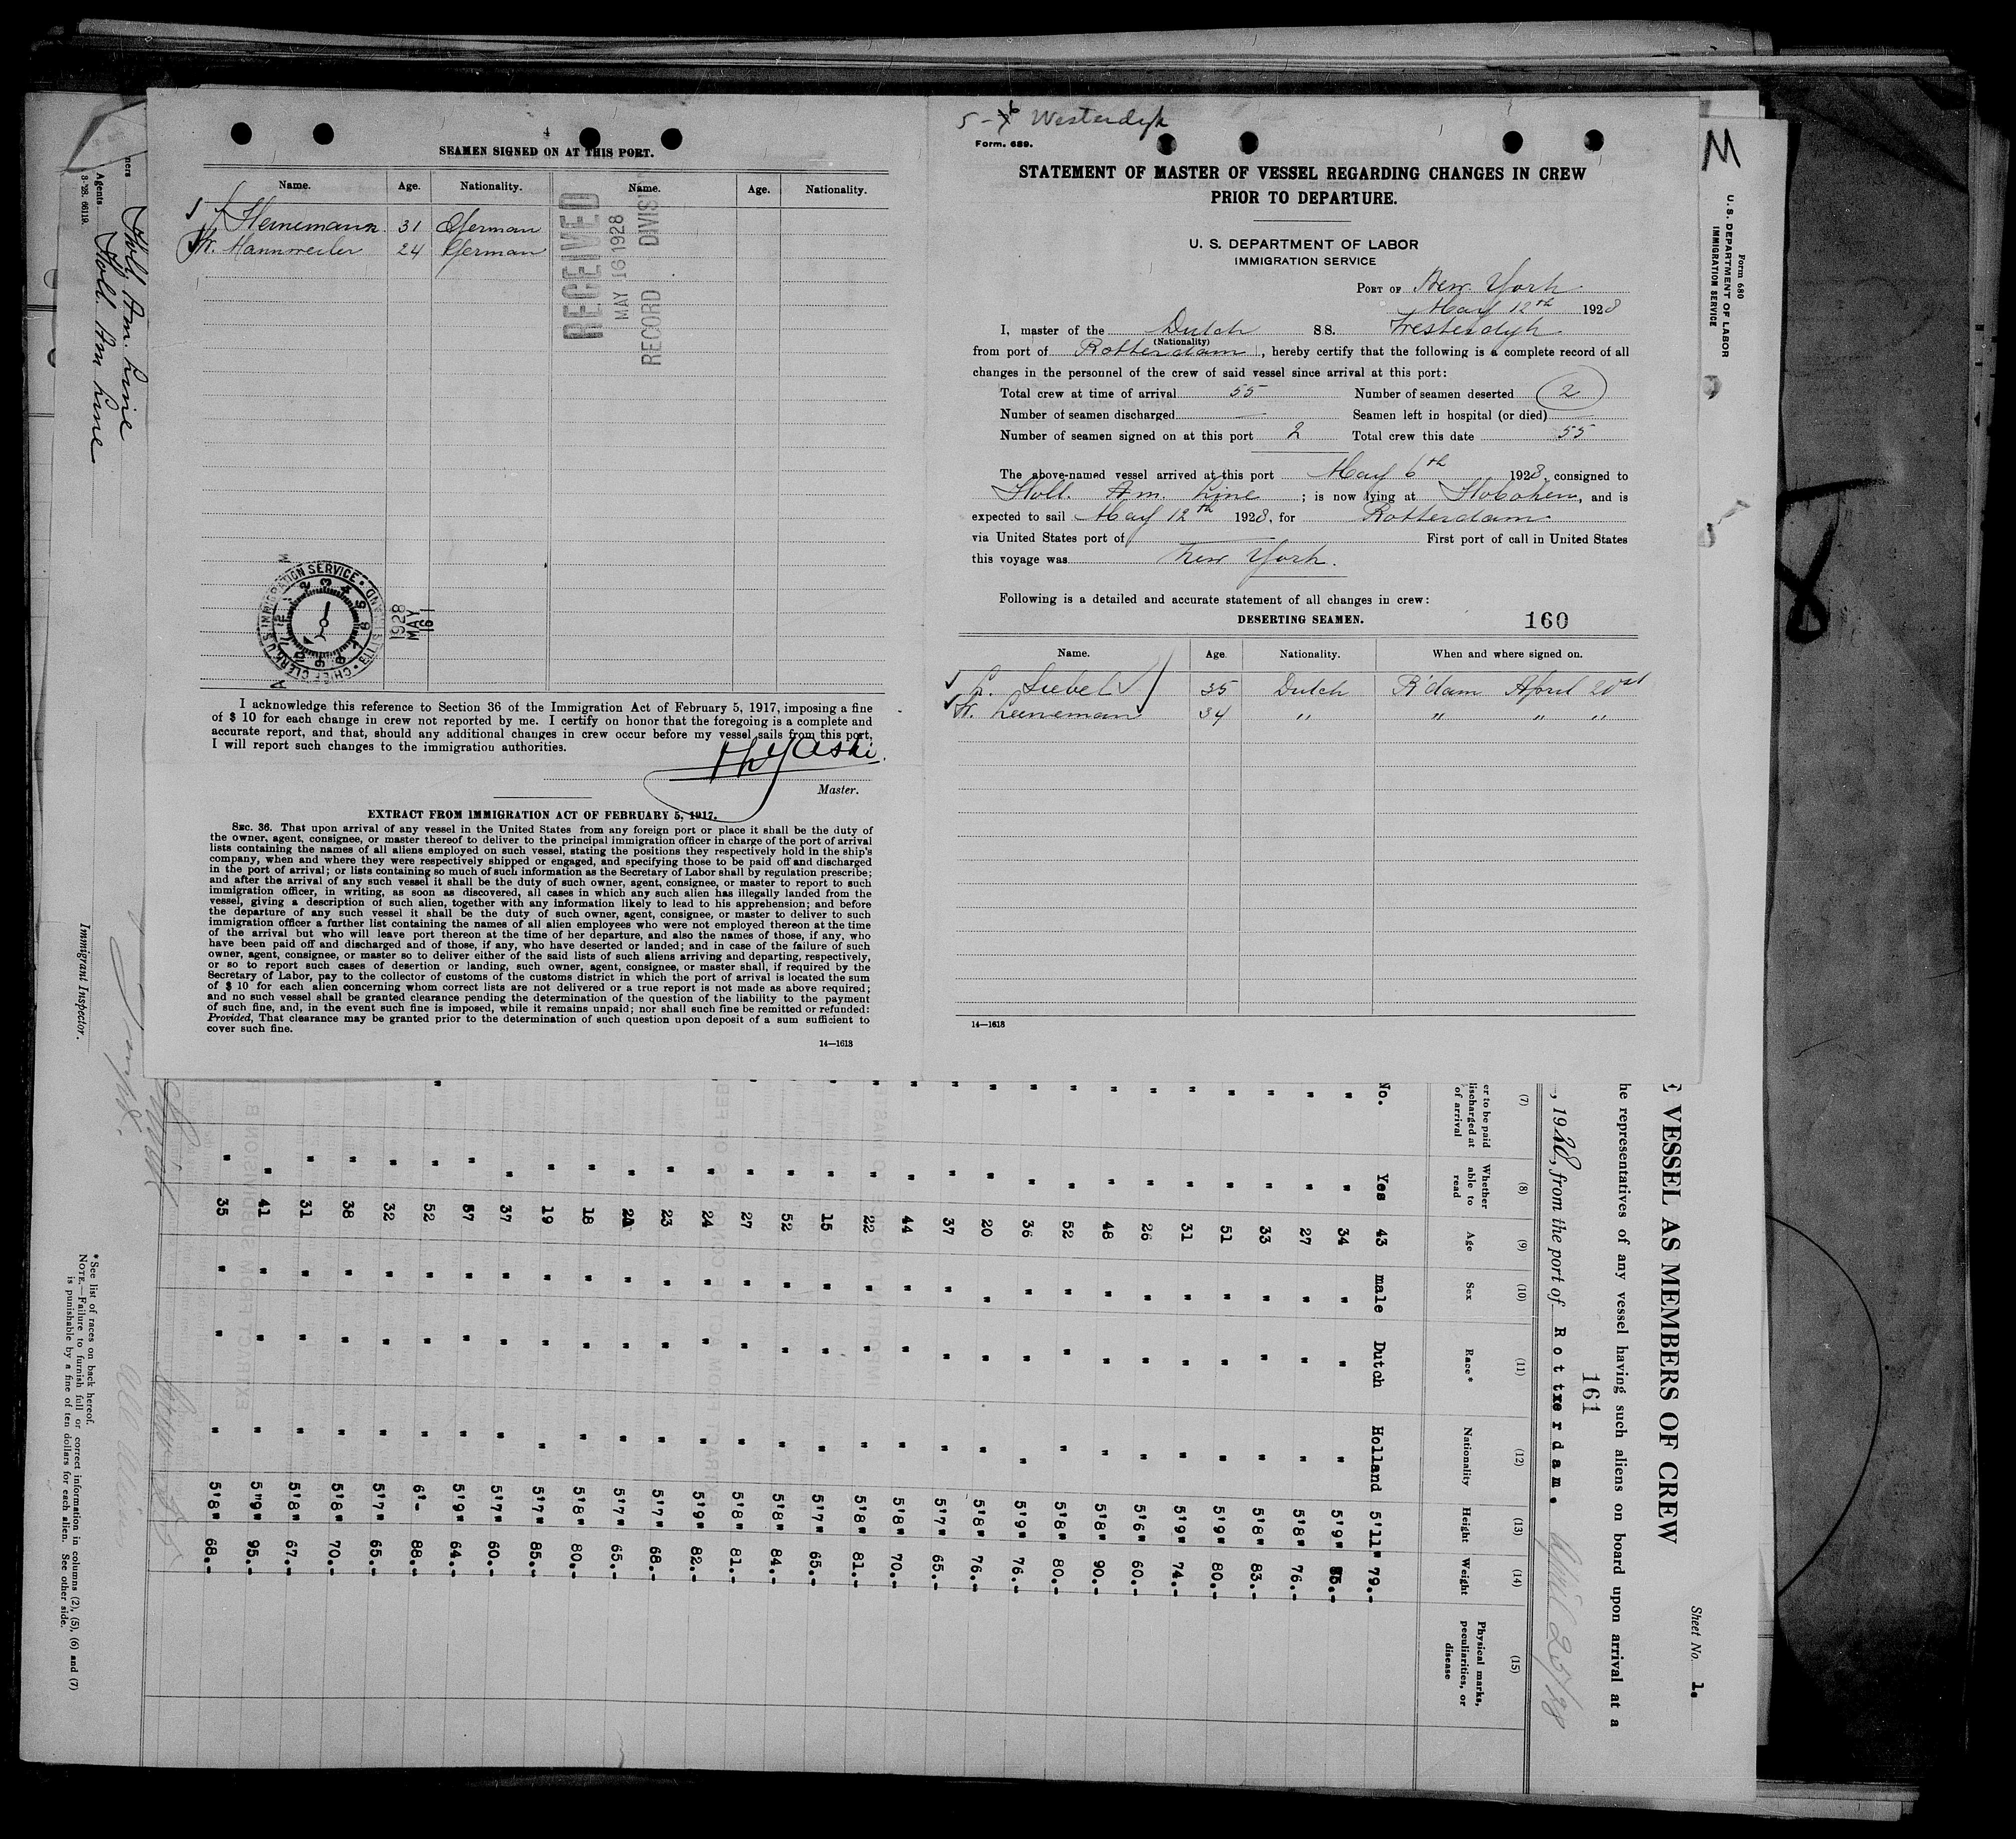 4
SEAMEN SIGNED ON AT THIS PORT.
Name. Age. Nationality. Name. Age. Nationality.
Heinemann 31 German
W. Mannweiler 24 German
RECEIVED
MAY 16 1928
RECORD DIVISION
U.S. IMMIGRATION SERVICE
CHIEF CLERK
1928
MAY
16
I acknowledge this reference to Section 36 of the Immigration Act of February 5, 1917, imposing a fine
of $ 10 for each change in crew not reported by me. I certify on honor that the foregoing is a complete and
accurate report, and that, should any additional changes in crew occur before my vessel sails from this port,
I will report such changes to the immigration authorities.
Master.
EXTRACT FROM IMMIGRATION ACT OF FEBRUARY 5, 1917.
SEC. 36. That upon arrival of any vessel in the United States from any foreign port or place it shall be the duty of
the owner, agent, consignee, or master thereof to deliver to the principal immigration officer in charge of the port of arrival
lists containing the names of all aliens employed on such vessel, stating the positions they respectively hold in the ship's
company, when and where they were respectively shipped or engaged, and specifying those to be paid off and discharged
in the port of arrival; or lists containing so much of such information as the Secretary of Labor shall by regulation prescribe;
and after the arrival of any such vessel it shall be the duty of such owner, agent, consignee, or master to report to such
immigration officer, in writing, as soon as discovered, all cases in which any such alien has illegally landed from the
vessel, giving a description of such alien, together with any information likely to lead to his apprehension; and before
the departure of any such vessel it shall be the duty of such owner, agent, consignee, or master to deliver to such
immigration officer a further list containing the names of all alien employees who were not employed thereon at the time
of the arrival but who will leave port thereon at the time of her departure, and also the names of those, if any, who
have been paid off and discharged and of those, if any, who have deserted or landed; and in case of the failure of such
owner, agent, consignee, or master so to deliver either of the said lists of such aliens arriving and departing, respectively,
or so to report such cases of desertion or landing, such owner, agent, consignee, or master shall, if required by the
Secretary of Labor, pay to the collector of customs of the customs district in which the port of arrival is located the sum
of $ 10 for each alien concerning whom correct lists are not delivered or a true report is not made as above required;
and no such vessel shall be granted clearance pending the determination of the question of the liability to the payment
of such fine, and, in the event such fine is imposed, while it remains unpaid; nor shall such fine be remitted or refunded:
Provided, That clearance may be granted prior to the determination of such question upon deposit of a sum sufficient to
cover such fine.
14—1613
5-6 Westerdyk
Form. 689.
STATEMENT OF MASTER OF VESSEL REGARDING CHANGES IN CREW
PRIOR TO DEPARTURE.
U. S. DEPARTMENT OF LABOR
IMMIGRATION SERVICE
PORT OF New York
May 12th 1928
I, master of the Dutch SS. Westerdyk
(Nationality)
from port of Rotterdam, hereby certify that the following is a complete record of all
changes in the personnel of the crew of said vessel since arrival at this port:
Total crew at time of arrival 55 Number of seamen deserted 2
Number of seamen discharged — Seamen left in hospital (or died)
Number of seamen signed on at this port 2 Total crew this date 55
The above-named vessel arrived at this port May 6th 1928, consigned to
Holl. Am. Line ; is now lying at Hoboken, and is
expected to sail May 12th 1928, for Rotterdam
via United States port of First port of call in United States
this voyage was New York.
Following is a detailed and accurate statement of all changes in crew:
DESERTING SEAMEN. 160
Name. Age. Nationality. When and where signed on.
Siebel 35 Dutch R'dam April 20st
W. Leeneman 34 " " " "
14—1613
M
Form 680
U. S. DEPARTMENT OF LABOR
IMMIGRATION SERVICE
8
Sheet No. 1.
E VESSEL AS MEMBERS OF CREW
he representatives of any vessel having such aliens on board upon arrival at a
161
, 1928, from the port of Rottxerdam. April 25/28
(7) (8) (9) (10) (11) (12) (13) (14) (15)
er to be paid discharged at of arrival
Whether able to read
Age
Sex
Race*
Nationality
Height
Weight
Physical marks, peculiarities, or disease
No. Yes 43 male Dutch Holland 5'11" 79.-
" " 34 " " " 5'9" 85.-
" " 27 " " " 5'8" 76.-
" " 33 " " " 5'8" 83.-
" " 51 " " " 5'9" 80.-
" " 31 " " " 5'9" 74.-
" " 26 " " " 5'6" 60.-
" " 48 " " " 5'8" 90.-
" " 52 " " " 5'8" 80.-
" " 36 " " " 5'9" 76.-
" " 20 " " " 5'8" 76.-
" " 37 " " " 5'7" 65.-
" " 44 " " " 5'8" 70.-
" " 22 " " " 5'8" 81.-
" " 15 " " " 5'7" 65.-
" " 52 " " " 5'8" 84.-
" " 27 " " " 5'8" 81.-
" " 24 " " " 5'9" 82.-
" " 23 " " " 5'7" 68.-
" " " " " 5'7" 65.-
" " 18 " " " 5'8" 80.-
" " 19 " " " 5'7" 85.-
" " 37 " " " 5'7" 60.-
" " 37 " " " 5'9" 64.-
" " 52 " " " 6'- 88.-
" " 32 " " " 5'7" 65.-
" " 38 " " " 5'8" 70.-
" " 31 " " " 5'8" 67.-
" " 41 " " " 5'9" 95.-
" " 35 " " " 5'8" 68.-
ners Holl. Am. Line
Agents Holl. Am Line
3-'28. 66119.
Immigrant Inspector.
*See list of races on back hereof.
NOTE.—Failure to furnish full or correct information in columns (2), (5), (6) and (7)
is punishable by a fine of ten dollars for each alien. See other side.